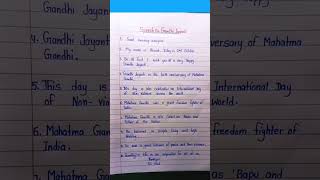 Speech on Gandhi Jayanti
1. Good morning everyone.
2. My name is Today is 2nd October.
3. first I wish you all a very Happy
Gandhi Jayanti.
4. Gandhi Jayanti is the birth anniversary of Mahatma
Gandhi.
5. This day is also celebrated as International Day of
Non-Violence around the world.
6. Mahatma Gandhi was a great freedom fighter of
India.
7. Mahatma Gandhi is also called as 'Bapu and
Father of the Nation.
8. He believed in simple living and high
thinking.
9. He was a great follower of peace and Non-violence.
10. Gandhiji's life is an inspiration for all of us.
Thankyou
Jai Hind
4. Gandhi Jayanti
Gandhi.
5. This day is
of Non-Viol
6. Mahatma Gan
India.
7. Mahatma Gan
of Mahatma
Day
World.
freedom fighter of
as 'Bapu and